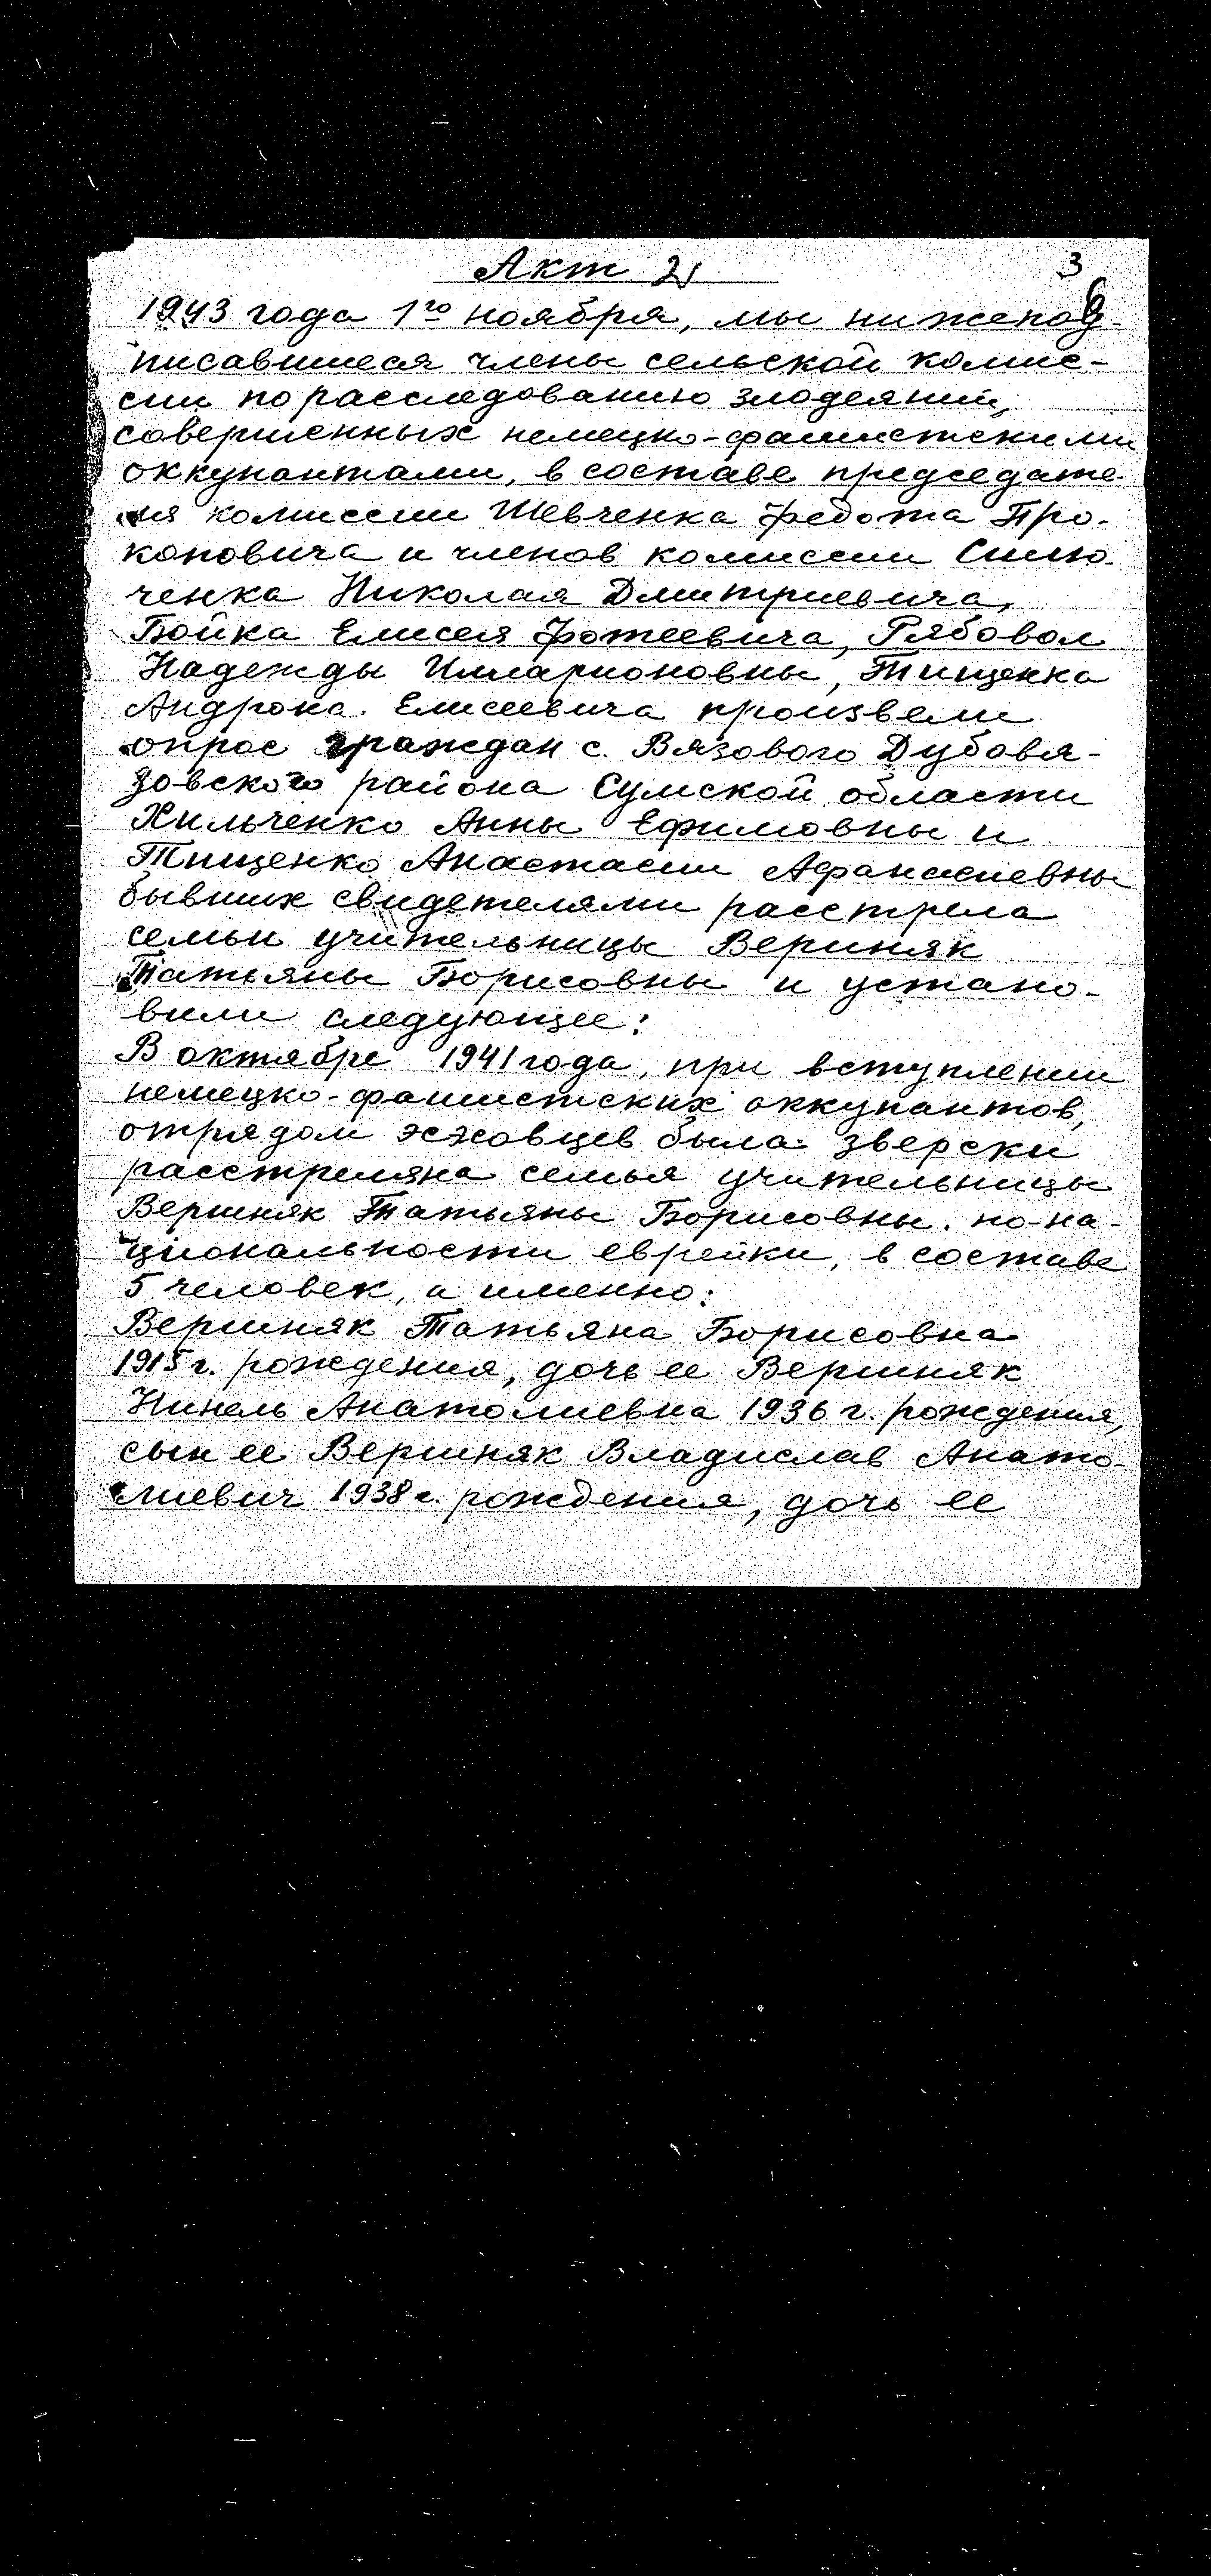 Акт 2 3
1943 года 1го ноября, мы нижепод-
писавшиеся члены сельской комис-
сии по расследованию злодеяний,
совершенных немецко-фашистскими
оккупантами, в составе председате-
ля комиссии Шевченка Федота Про-
коповича и членов комиссии Симо-
ченка Николая Дмитриевича,
Бойка Елисея Фотеевича, Рябовол
Надежды Илларионовны, Тищенка
Андрона Елисеевича произвели
опрос граждан с. Вязового Дубовя-
зовского района Сумской области
Хильченко Анны Ефимовны и
Тищенко Анастасии Афанасиевны
бывших свидетелями расстрела
семьи учительницы Вершняк
Татьяны Борисовны и устано-
вили следующее:
В октябре 1941 года, при вступлении
немецко-фашистских оккупантов,
отрядом эсэсовцев была зверски
расстреляна семья учительницы
Вершняк Татьяны Борисовны. по-на-
циональности еврейки, в составе
5 человек, а именно:
Вершняк Татьяна Борисовна
1915 г. рождения, дочь ее Вершняк
Нинель Анатолиевна 1936 г. рождения,
сын ее Вершняк Владислав Анато-
лиевич 1938 г. рождения, дочь ее